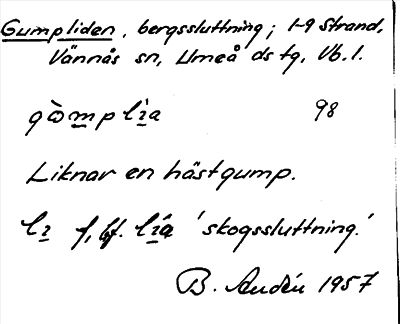 Gumpliden, bergssluttning; 1-9 Strand,
Vännås sn, Umeå ds tg, Vb. l.
gὼmplìa 98
Liknar en hästgump.
lı f, bf. lı́a 'skogssluttning.'
B. 1957